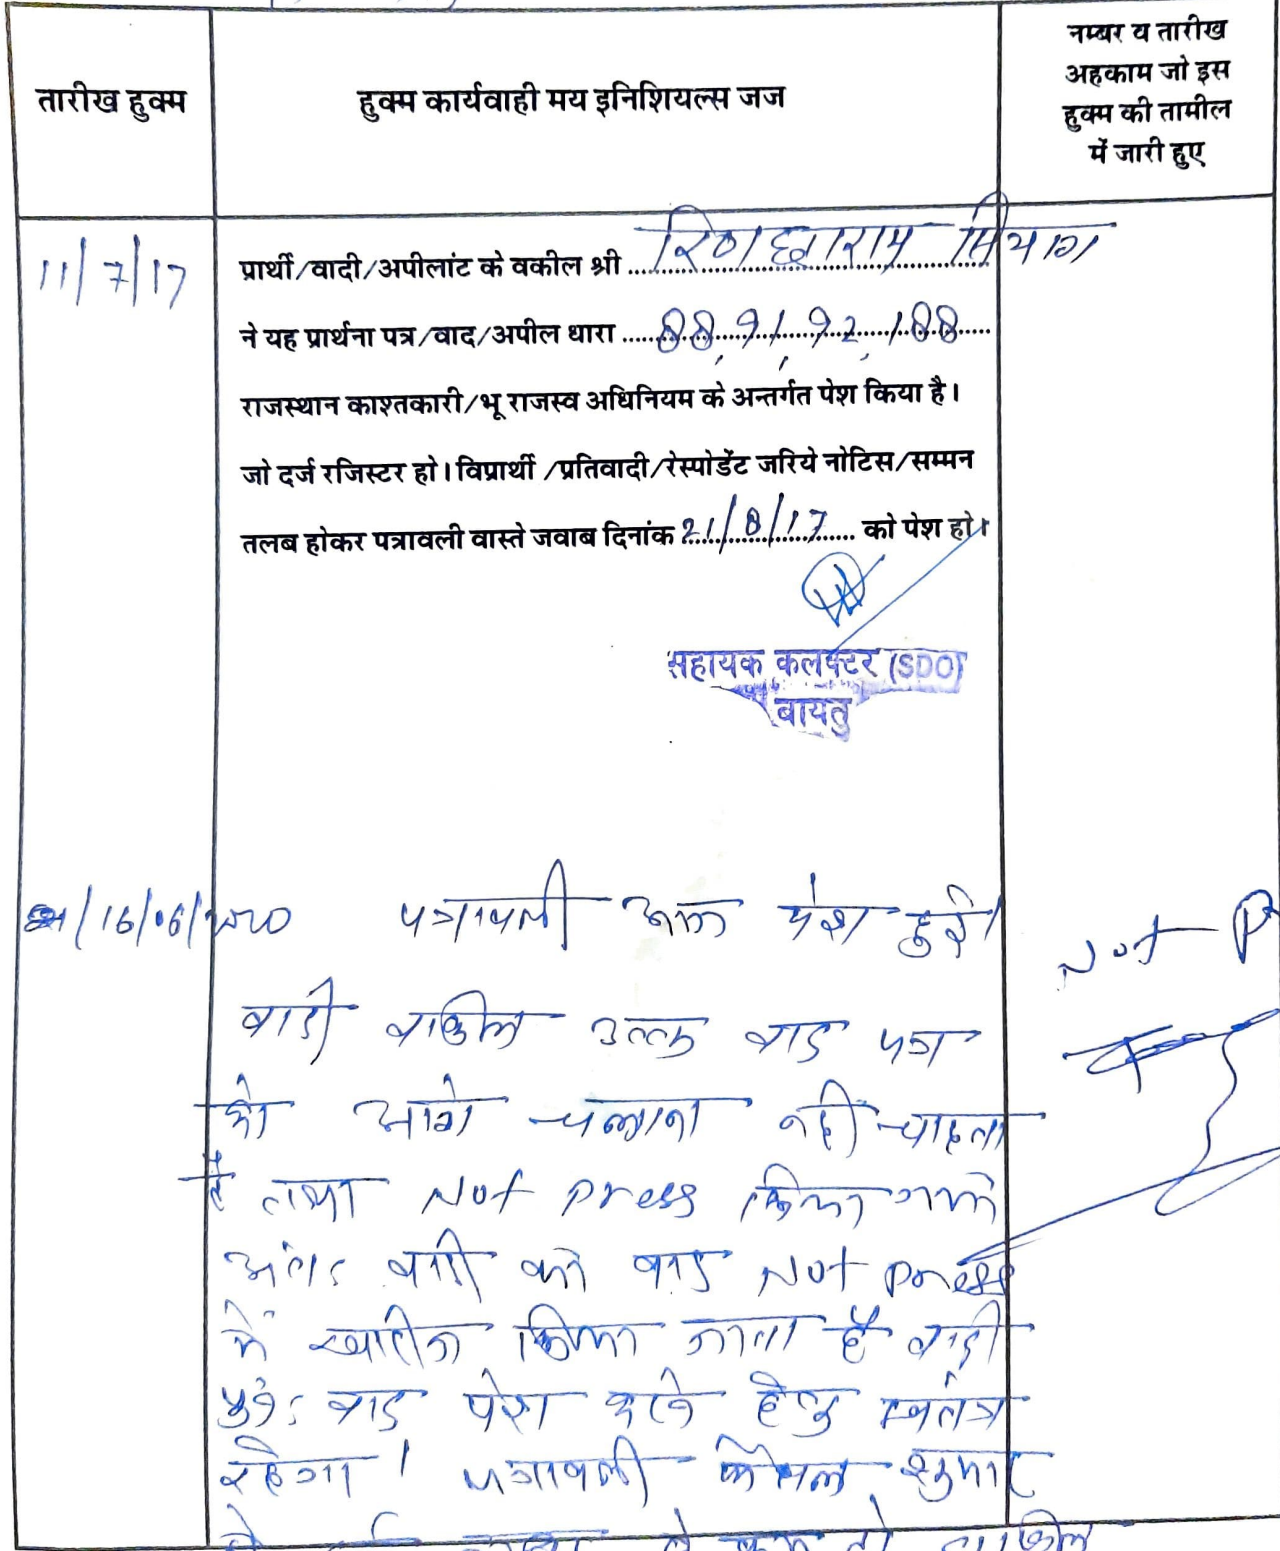 तारीख हुक्म
हुक्म कार्यवाही मय इनिशियल्स जज
नम्बर व तारीख
अहकाम जो इस
हुक्म की तामील
में जारी हुए
11/7/17
प्रार्थी/वादी/अपीलांट के वकील श्री
ने यह प्रार्थना पत्र/वाद/अपील धारा 88, 91, 92, 188
राजस्थान काश्तकारी/भू राजस्व अधिनियम के अन्तर्गत पेश किया है।
जो दर्ज रजिस्टर हो। विप्रार्थी /प्रतिवादी/रेस्पोडेंट जरिये नोटिस/सम्मन
तलब होकर पत्रावली वास्ते जवाब दिनांक 21/8/17 को पेश हो।
सहायक कलक्टर (SDO)
बायतु
16/06/2020 पत्रावली आज पेश हुई।
वादी वकील उक्त वाद पत्र
को आगे चलाना नहीं चाहता
है तथा Not press किया जावे
अतः वादी का वाद Not press
में खारीज किया जाता है वादी
पुनः वाद पेश करने हेतु स्वतंत्र
रहेगा। पत्रावली फैसल शुमार
Not P